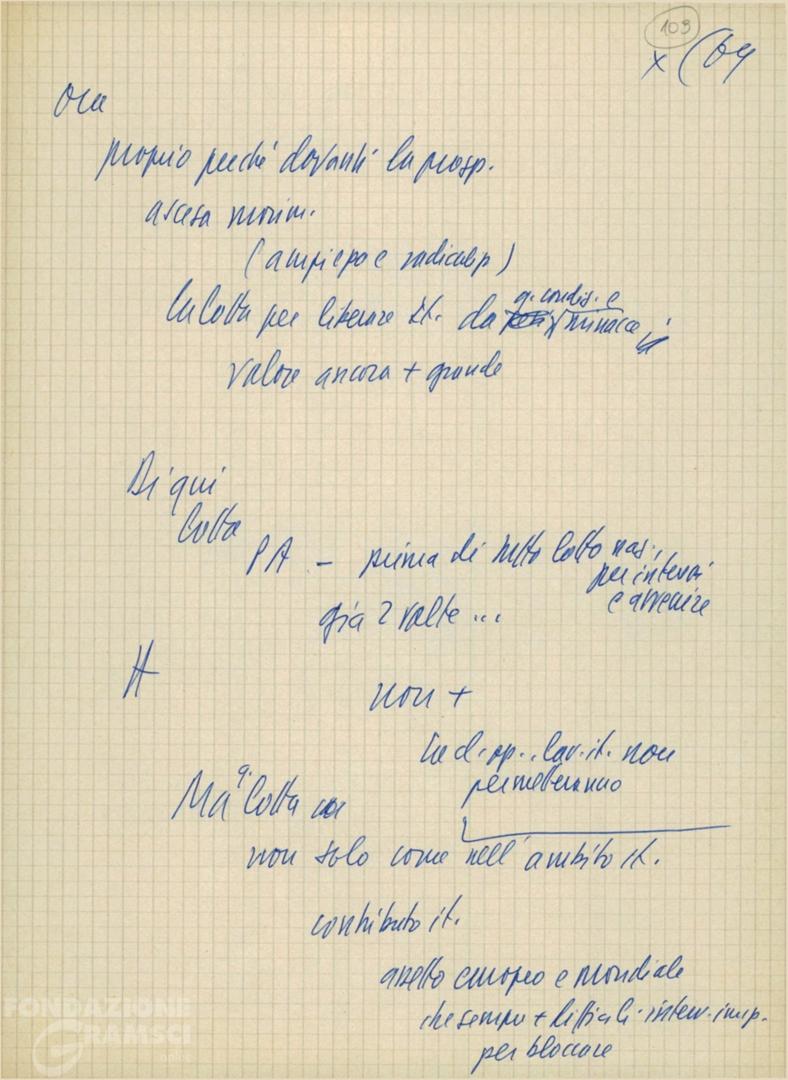 103
x (64
Ora
proprio perché davanti la prosp.
ascesa movim.
(ampiezza e radicalip)
la lotta per liberare It. da q. condiz. e minacce
valore ancora + grande
Di qui
lotta
PA - prima di tutto lotta naz.,
per interessi
e avvenire
già 2 volte ...
H
non +
la d. op. lav. it. non
permetteranno
Ma q. lotta
non solo come nell'ambito it.
contributo it.
assetto europeo e mondiale
che sempre + difficili interv. imp.
per bloccare
FONDAZIONE
GRAMSCI